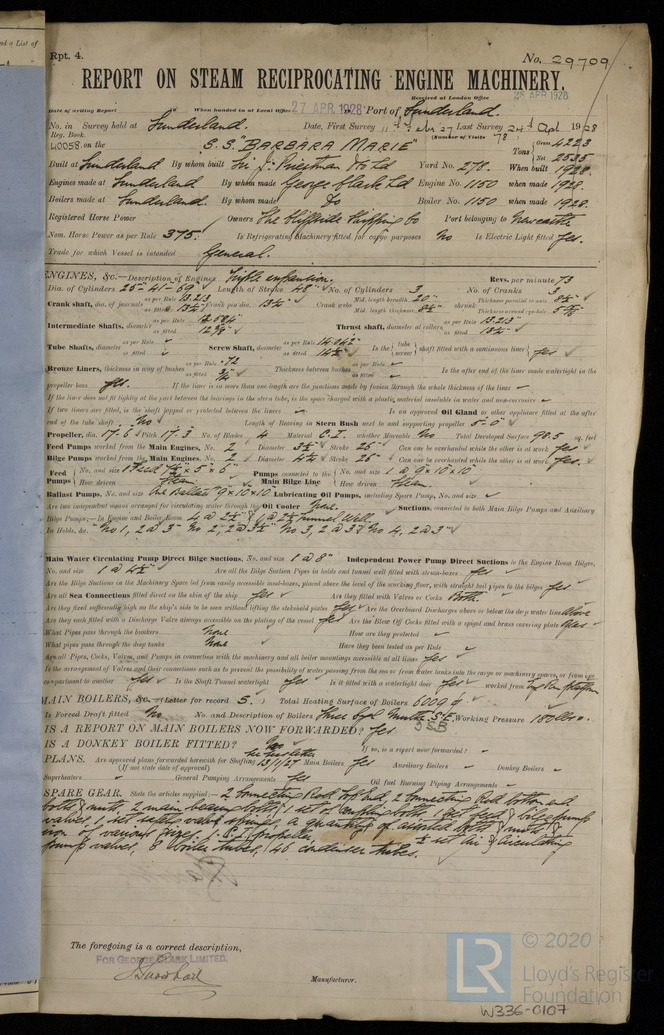 nd a List of
Rpt. 4.
No. 29709
REPORT ON STEAM RECIPROCATING ENGINE MACHINERY.
Received at London Office 28 APR 1928
Date of writing Report 19 When handed in at Local Office 27 APR. 1928 Port of Sunderland.
No. in Reg. Book. Survey held at Sunderland. Date, First Survey 11th Feb 27 Last Survey 24th Apl 1928
(Number of Visits 78)
40058 on the S.S. "BARBARA MARIE" Tons Gross 4223 Net 2535
Built at Sunderland By whom built Sir J. Priestman & Co Ltd Yard No. 278. When built 1928.
Engines made at Sunderland By whom made George Clark Ltd Engine No. 1150 when made 1928.
Boilers made at Sunderland. By whom made Do Boiler No. 1150 when made 1928.
Registered Horse Power Owners The Cliffside Shipping Co Port belonging to Newcastle
Nom. Horse Power as per Rule 375. Is Refrigerating Machinery fitted for cargo purposes No Is Electric Light fitted Yes.
Trade for which Vessel is intended General.
ENGINES, &c.—Description of Engines Triple expansion. Revs. per minute 73
Dia. of Cylinders 25-41-69 Length of Stroke 48" No. of Cylinders 3 No. of Cranks 3
Crank shaft, dia. of journals as per Rule 13.213 as fitted 13½" Crank pin dia. 13½" Crank webs Mid. length breadth 20" Mid. length thickness 8½" shrunk Thickness parallel to axis 8½" Thickness around eye-hole
Intermediate Shafts, diameter as per Rule 12.584" as fitted Thrust shaft, diameter at collars as per Rule 13.213" as fitted 13½"
Tube Shafts, diameter as per Rule as fitted Screw Shaft, diameter as per Rule 14.042" as fitted Is the tube screw shaft fitted with a continuous liner yes
Bronze Liners, thickness in way of bushes as per Rule .72 as fitted ¾" Thickness between bushes as per Rule as fitted Is the after end of the liner made watertight in the
propeller boss yes. If the liner is in more than one length are the junctions made by fusion through the whole thickness of the liner
If the liner does not fit tightly at the part between the bearings in the stern tube, is the space charged with a plastic material insoluble in water and non-corrosive
If two liners are fitted, is the shaft lapped or protected between the liners Is an approved Oil Gland or other appliance fitted at the after
end of the tube shaft No Length of Bearing in Stern Bush next to and supporting propeller 5'-0"
Propeller, dia. 17-6 Pitch 17-3 No. of Blades 4 Material C.I. whether Moveable No Total Developed Surface 90.5 sq. feet
Feed Pumps worked from the Main Engines, No. 2 Diameter 3½" Stroke 25" Can one be overhauled while the other is at work yes
Bilge Pumps worked from the Main Engines, No. 2 Diameter 4½" Stroke 25" Can one be overhauled while the other is at work yes.
Feed Pumps No. and size How driven Steam Pumps connected to the Main Bilge Line No. and size 1 @ 9×10×10 How driven Steam.
Ballast Pumps, No. and size One Ballast 9×10×10 Lubricating Oil Pumps, including Spare Pump, No. and size
Are two independent means arranged for circulating water through the Oil Cooler Suctions, connected to both Main Bilge Pumps and Auxiliary
Bilge Pumps;—In Engine and Boiler Room 4 @ 2½" & 1 @ 2½" Tunnel Well
In Holds, &c. No 1, 2 @ 3" No 2, 2 @ 3½" No 3, 2 @ 3" No 4, 2 @ 3"
Main Water Circulating Pump Direct Bilge Suctions, No. and size 1 @ 8" Independent Power Pump Direct Suctions to the Engine Room Bilges,
No. and size 1 @ 4½" Are all the Bilge Suction Pipes in holds and tunnel well fitted with strum-boxes yes
Are the Bilge Suctions in the Machinery Space led from easily accessible mud-boxes, placed above the level of the working floor, with straight tail pipes to the bilges yes
Are all Sea Connections fitted direct on the skin of the ship yes Are they fitted with Valves or Cocks Both.
Are they fixed sufficiently high on the ship's side to be seen without lifting the stokehold plates yes Are the Overboard Discharges above or below the deep water line Above
Are they each fitted with a Discharge Valve always accessible on the plating of the vessel yes Are the Blow Off Cocks fitted with a spigot and brass covering plate yes
What Pipes pass through the bunkers None How are they protected
What pipes pass through the deep tanks None Have they been tested as per Rule
Are all Pipes, Cocks, Valves, and Pumps in connection with the machinery and all boiler mountings accessible at all times yes
Is the arrangement of Valves and their connections such as to prevent the possibility of water passing from the sea or from water tanks into the cargo or machinery spaces, or from one
compartment to another yes Is the Shaft Tunnel watertight yes Is it fitted with a watertight door yes worked from Top Platform
MAIN BOILERS, &c.—(Letter for record S.) Total Heating Surface of Boilers 6009 ϕ
Is Forced Draft fitted No No. and Description of Boilers Three Cyl Multi S.E. Working Pressure 180 lbs
IS A REPORT ON MAIN BOILERS NOW FORWARDED? Yes
IS A DONKEY BOILER FITTED? No If so, is a report now forwarded?
PLANS. Are approved plans forwarded herewith for Shafting Main Boilers yes Auxiliary Boilers Donkey Boilers
(If not state date of approval)
Superheaters General Pumping Arrangements yes Oil fuel Burning Piping Arrangements
SPARE GEAR. State the articles supplied:— 2 Connecting Rod top end, 2 Connecting Rod bottom end
bolts & nuts, 2 main bearing bolts, 1 set of coupling bolts, 1 set feed & bilge pump
valves, 1 set safety valve springs, a quantity of assorted bolts & nuts &
iron of various sizes, 1 C.I. propeller ½ set air & circulating
pump valves, 8 boiler tubes, 46 condenser tubes.
The foregoing is a correct description,
FOR GEORGE CLARK LIMITED.
Manufacturer.
LR
© 2020
Lloyd's Register
Foundation
W336-0107